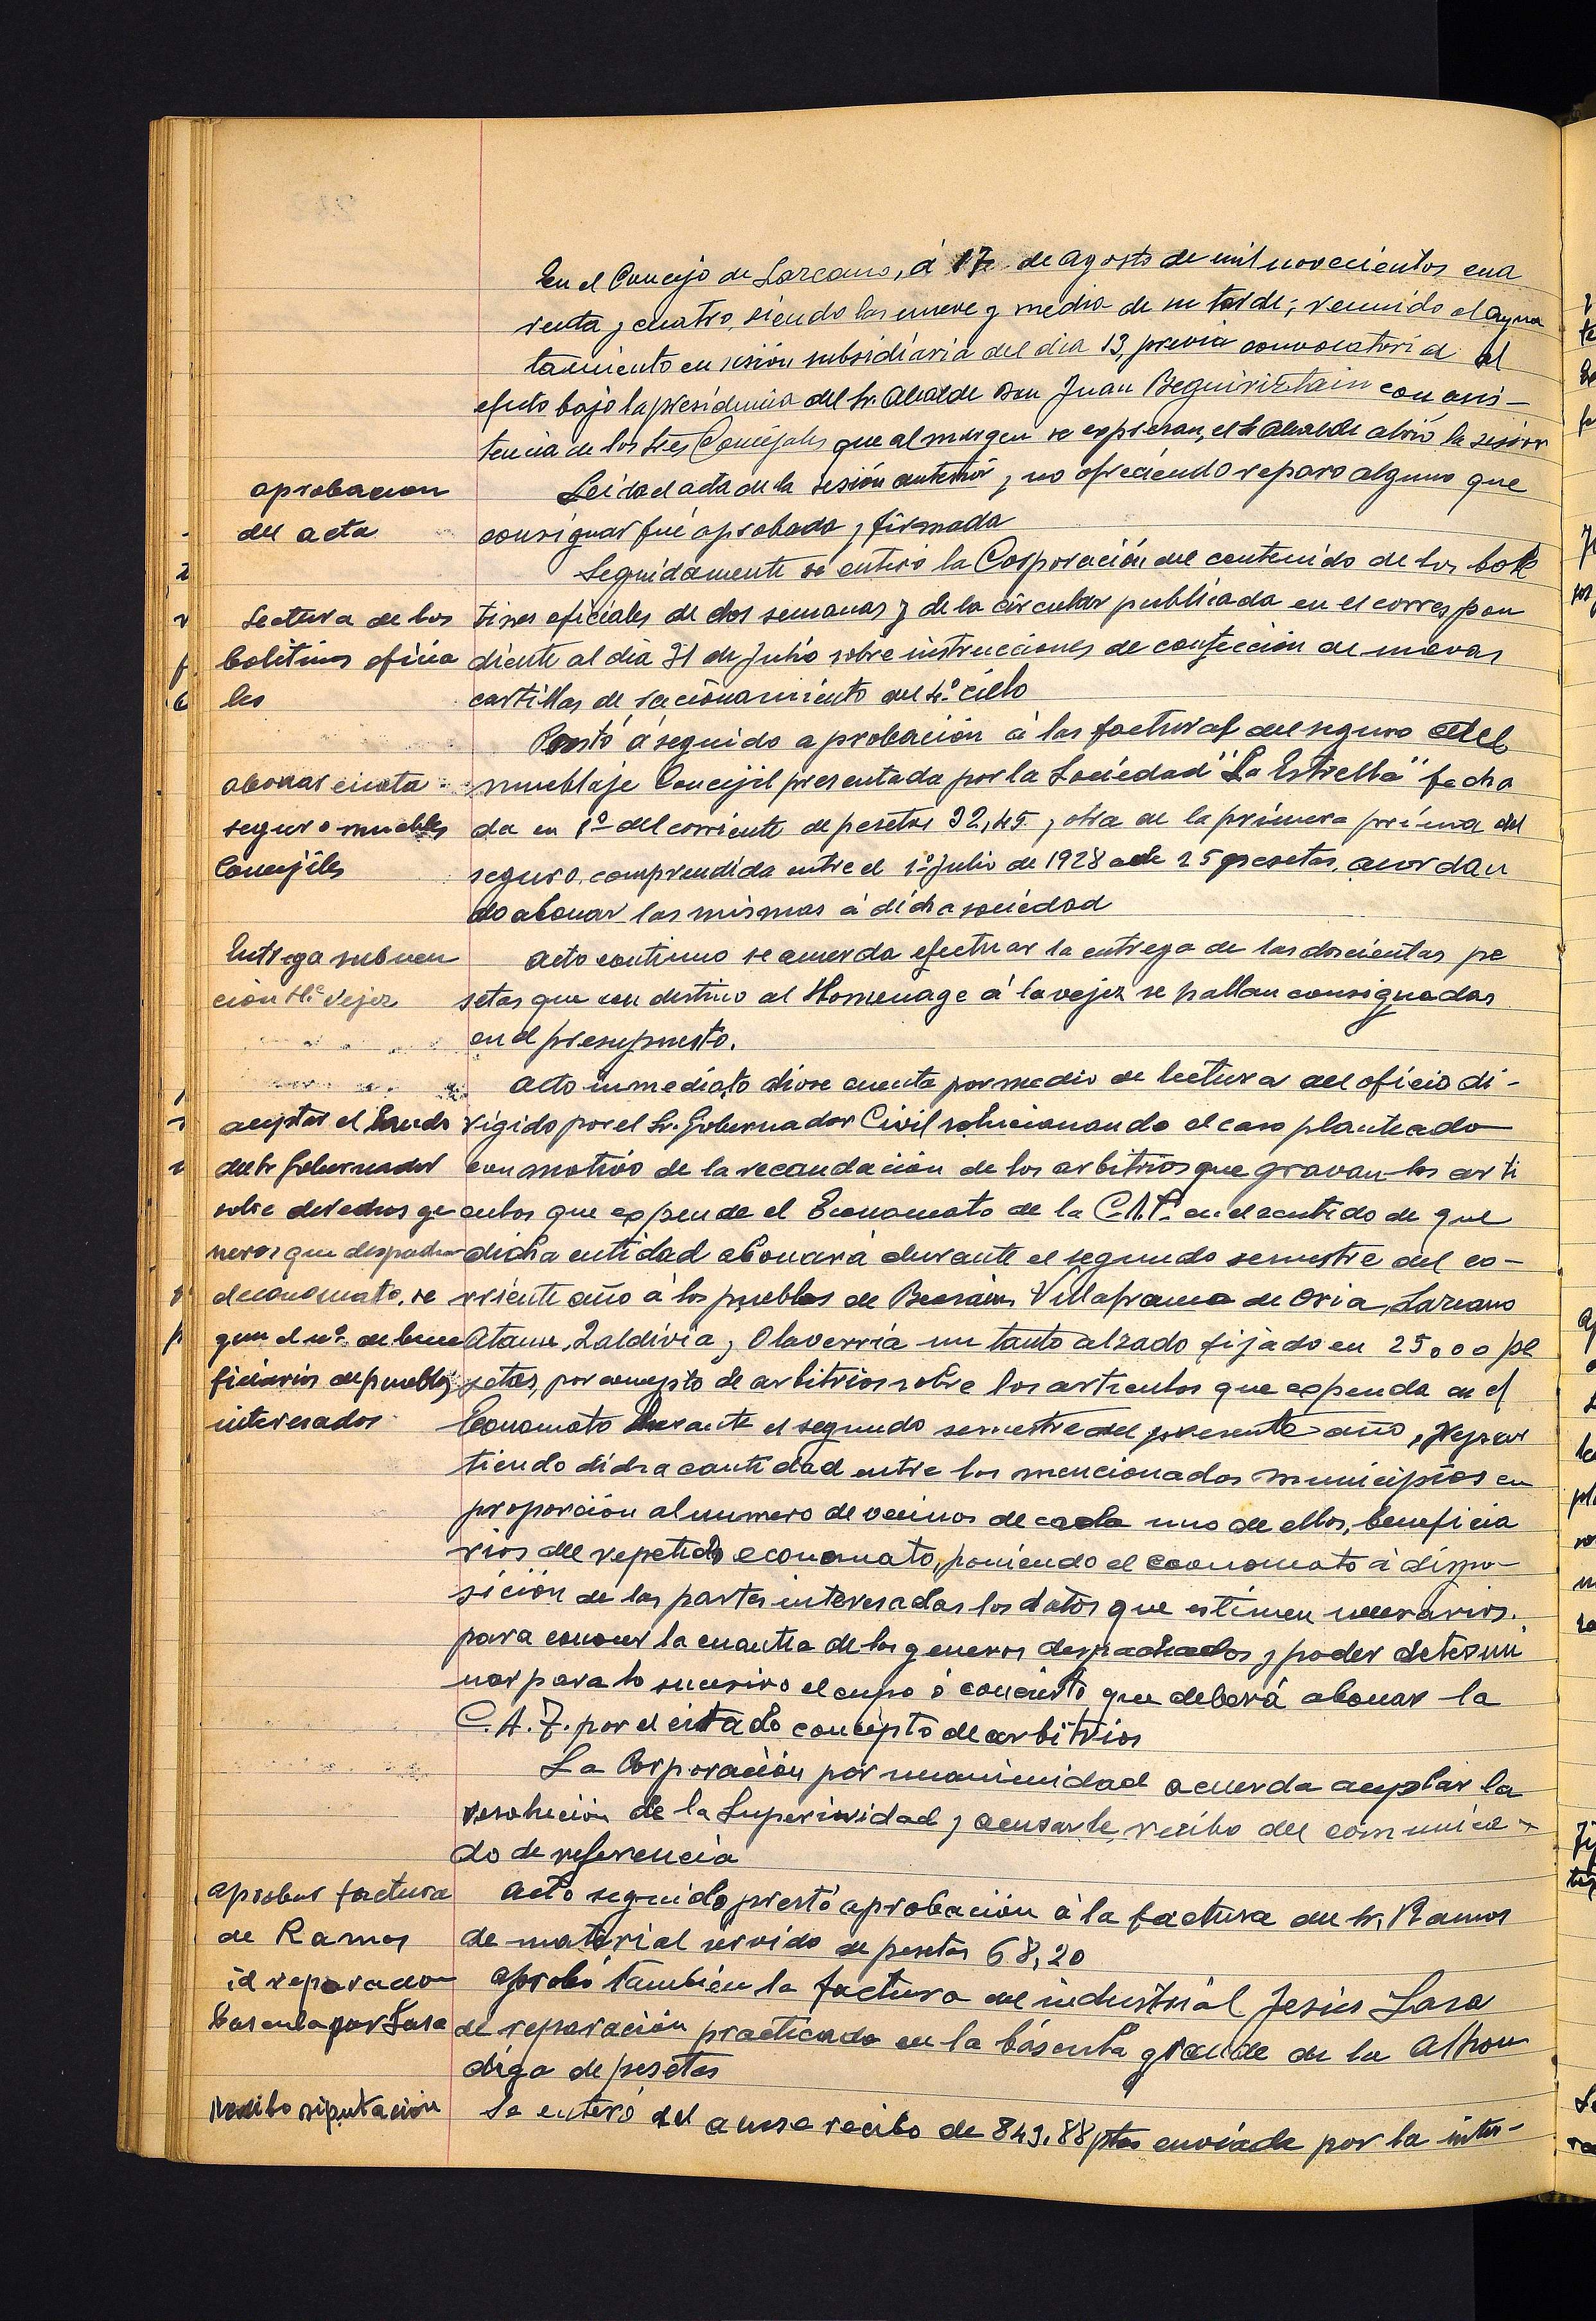 En el Concejo de Lazcano, á 17 de agosto de mil novecientos cua
renta y cuatro, siendo las nueve y media de su tarde; reunido el ayun
tamiento en sesión subsidiaria del dia 13, previa convocatoria al
efecto bajo la presidencia del Sr. Alcalde Don Juan Beguiristain con asis-
tencia de los tres Concejales que al margen se expresan, el Sr Alcalde abrió la sesión
aprobacion
del acta
Leida el acta de la sesión anterior y no ofreciendo reparo alguno que
consignar fué aprobada y firmada
Lectura de los
boletines oficia
les
Seguidamente se enteró la Corporación del contenido de los bole
tines oficiales de dos semanas y de la circular publicada en el correspon
diente al dia 31 de Julio sobre instrucciones de confección de nuevas
cartillas de racionamiento del 4º ciclo
abonar cuota
seguro muebles
Concejiles
Prestó á seguido aprobación á las facturas del seguro del
mueblaje Concejil presentada por la Sociedad "La Estrella" fecha
da en 1º del corriente de pesetas 32,45 y otra de la primera prima del
seguro comprendida entre el 1º Julio de 1928 de 25 pesetas, acordan
do abonar las mismas á dicha sociedad
Entrega subven
ción Hº Vejez
Acto continuo se acuerda efectuar la entrega de las doscientas pe
setas que con destino al Homenage á la vejez se hallan consignadas
en el presupuesto.
aceptar el laudo
del Sr Gobernador
sobre derechos ge
neros que despacha
el economato, se
gun el nº de bene
ficiarios de pueblos
interesados
Acto inmediato dióse cuenta por medio de lectura del oficio di-
rigido por el Sr. Gobernador Civil solucionando el caso planteado
con motivo de la recaudación de los arbitrios que gravan los arti
culos que expende el Economato de la C.A.F. en el sentido de que
dicha entidad abonará durante el segundo semestre del co-
rriente año á los pueblos de Beasain, Villafranca de Oria, Lazcano
Ataun, Zaldivia y Olaverria un tanto alzado fijado en 25000 pe
setas, por concepto de arbitrios sobre los articulos que expenda en el
Economato durante el segundo semestre del presente año, repar
tiendo dicha cantidad entre los mencionados municipios en
proporción al numero de vecinos de cada uno de ellos, beneficia
rios del repetido economato, poniendo el economato á dispo-
sición de las partes interesadas los datos que estimen necesarios
para conocer la cuantia de los generos despachados y poder determi
nar para lo sucesivo el cupo ó concierto que deberá abonar la
C.A.F. por el citado concepto de arbitrios
La Corporación por unanimidad acuerda aceptar la
resolución de la Superioridad y acusarle recibo del comunica-
do de referencia
aprobar factura
de Ramos
Acto seguido prestó aprobación á la factura del Sr. Ramos
de material servido de pesetas 68,20
id reparacion
bascula por Lasa
aprobó también la factura del industrial Jesús Lasa
de reparación practicada en la báscula grande de la Alhon
diga de pesetas
Recibo diputación
Se enteró del acuse recibo de 849,88 ptas enviada por la inter-